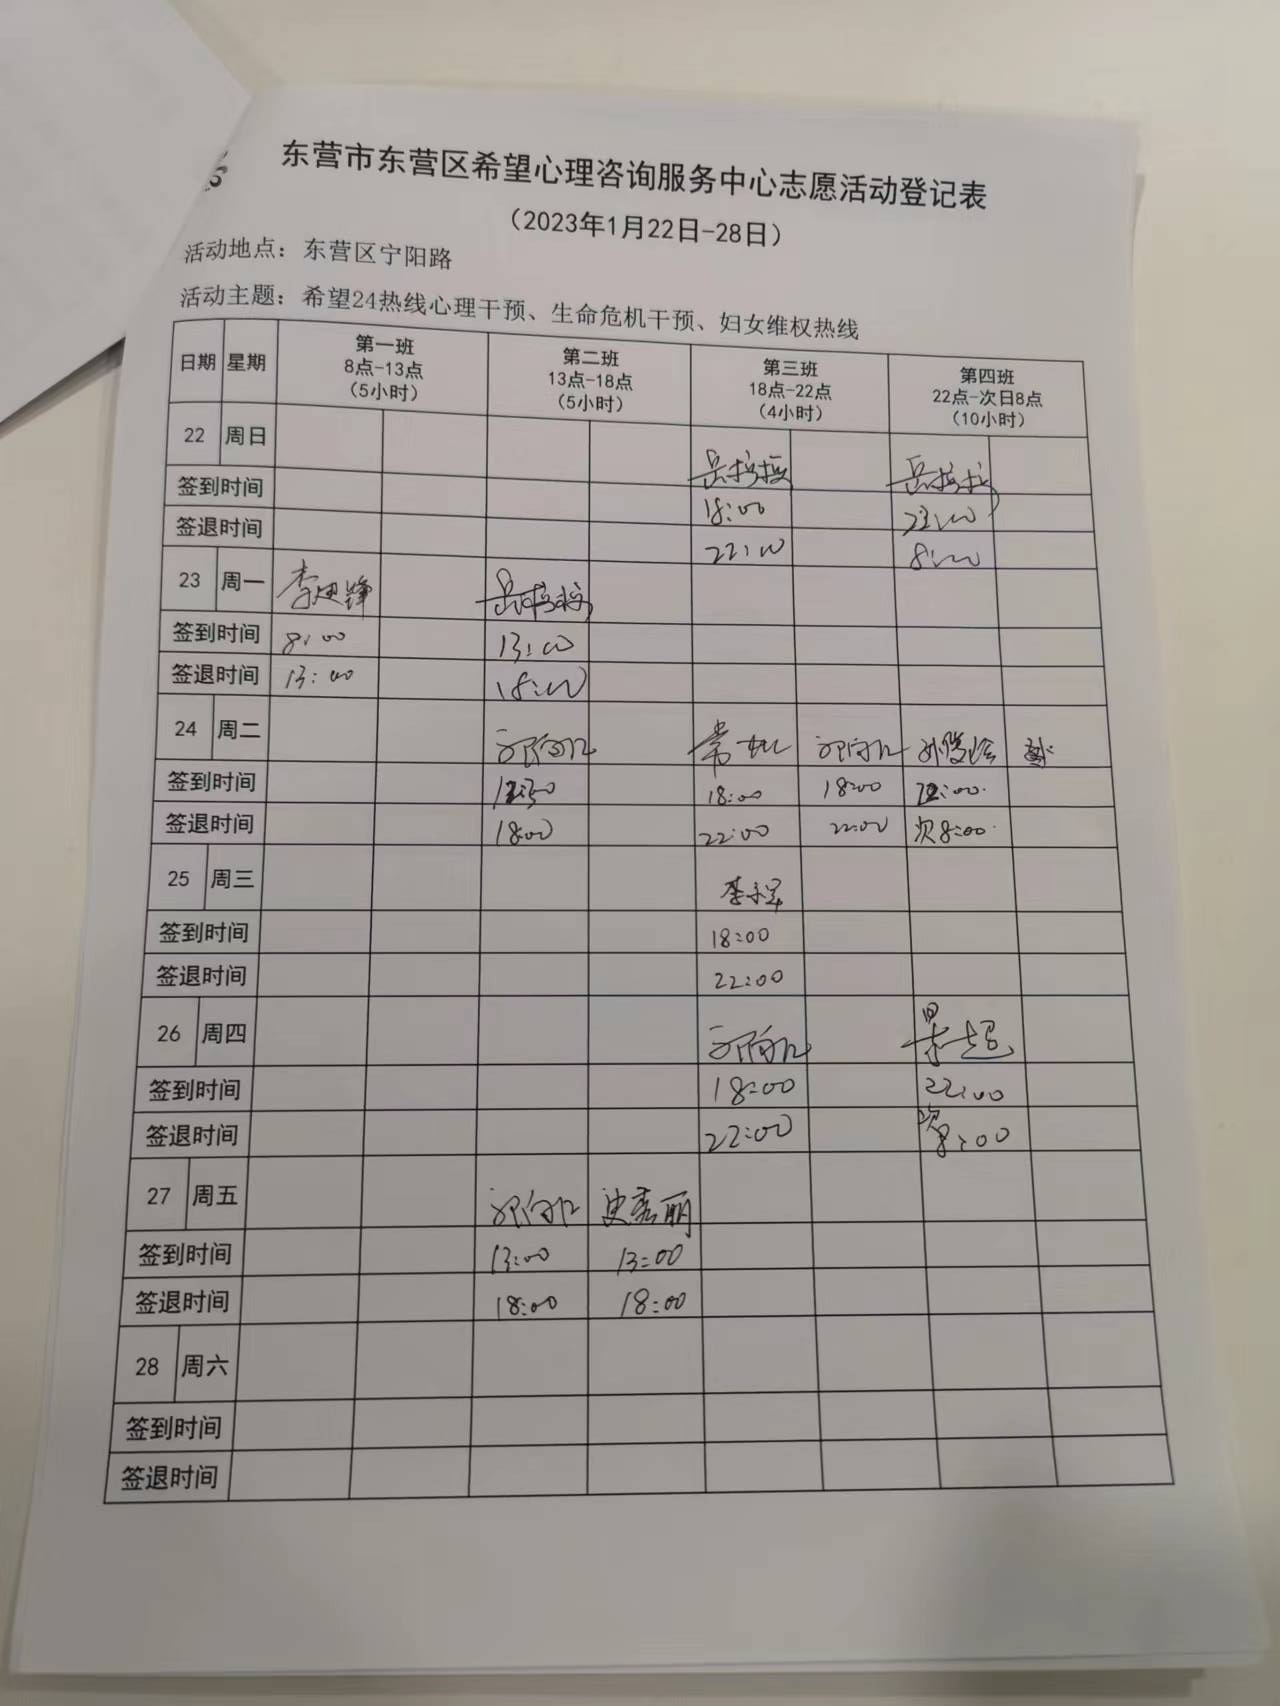 东营市东营区希望心理咨询服务中心志愿活动登记表
（2023年1月22日-28日）
活动地点：东营区宁阳路
活动主题：希望24热线心理干预、生命危机干预、妇女维权热线
日期 星期 第一班 第二班 第三班 第四班
8点-13点 13点-18点 18点-22点 22点-次日8点
（5小时） （5小时） （4小时） （10小时）
22 周日
签到时间 18:00
签退时间 22:00 8:00
23 周一
签到时间 8:00 13:00
签退时间 13:00 18:00
24 周二
签到时间 18:00 18:00 22:00
签退时间 18:00 22:00 22:00 次8:00
25 周三
签到时间 18:00
签退时间 22:00
26 周四
签到时间 18:00 22:00
签退时间 22:00 次8:00
27 周五 史秀丽
签到时间 13:00 13:00
签退时间 18:00 18:00
28 周六
签到时间
签退时间